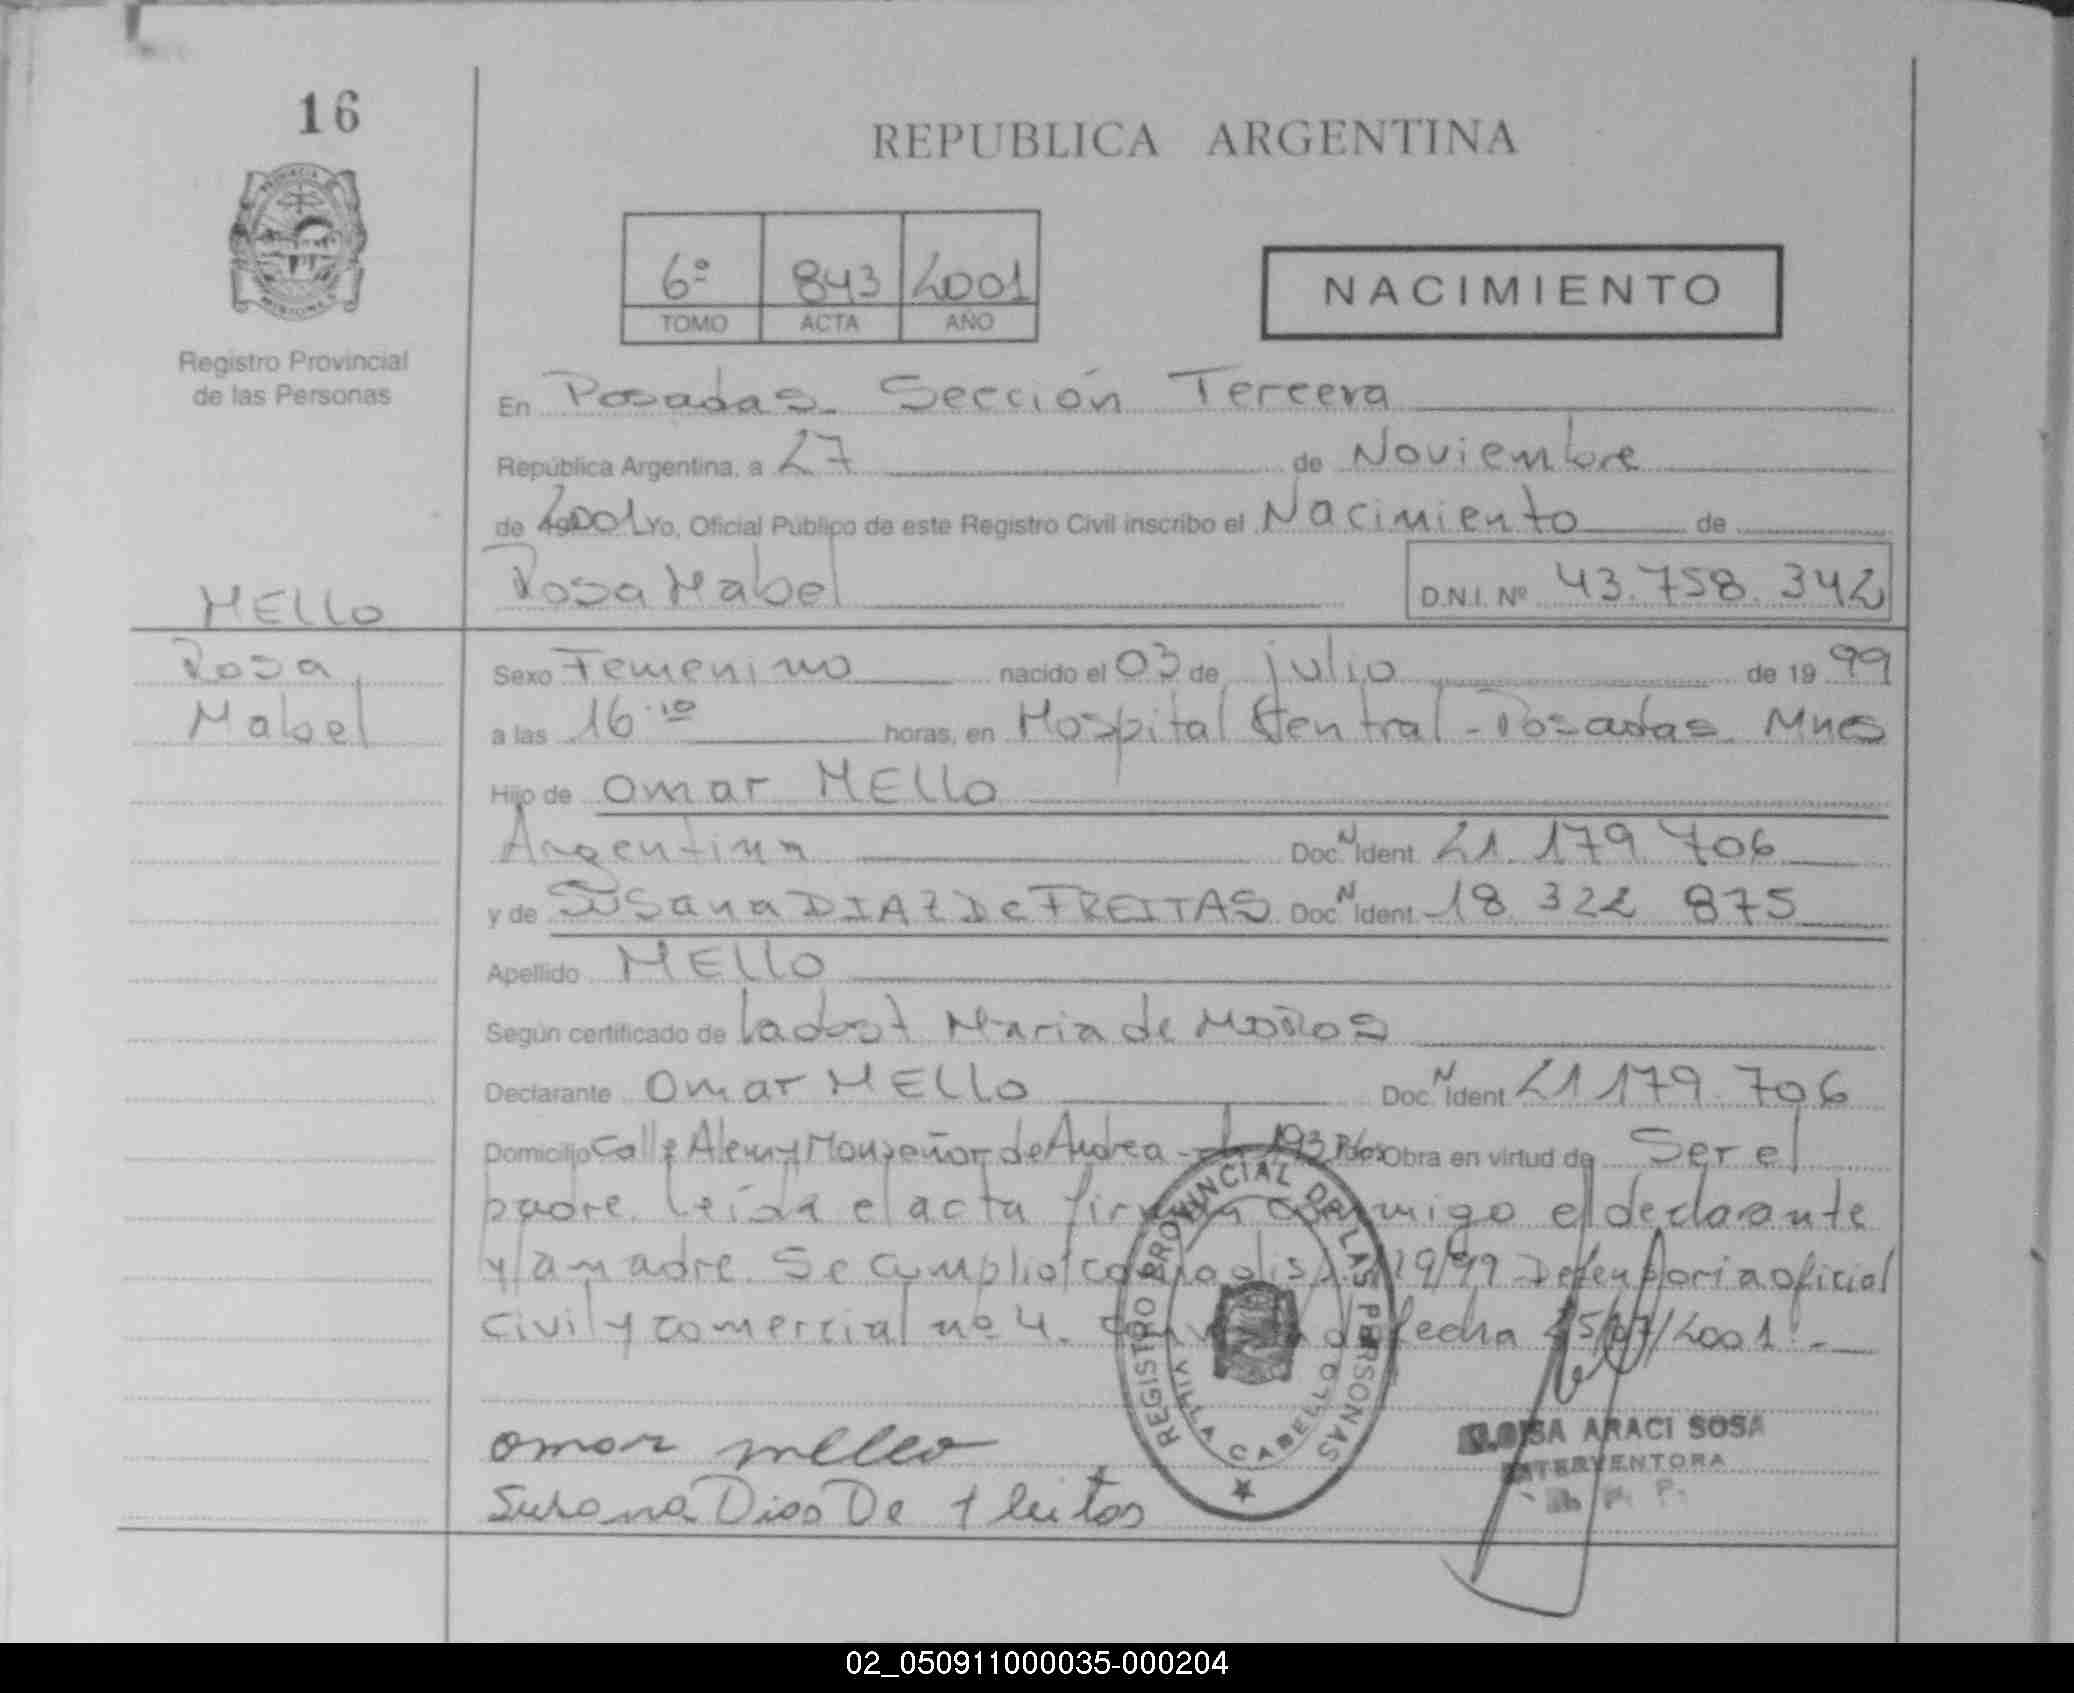 16
REPUBLICA ARGENTINA
6º 843 2001
TOMO ACTA AÑO
NACIMIENTO
Registro Provincial
de las Personas
En Posadas Sección Tercera
República Argentina, a 27 de Noviembre
de 2001 Yo, Oficial Público de este Registro Civil inscribo el Nacimiento de
MELLO
Rosa Mabel D.N.I. Nº 43.758.342
Rosa
Mabel
Sexo Femenino nacido el 03 de julio de 1999
a las 16.10 horas, en Hospital Central - Posadas Mnes
Hijo de Omar MELLO
Argentina Doc. N Ident 21.179.706
y de Susana DIAZ De FREITAS Doc. N Ident 18 322 875
Apellido MELLO
Según certificado de Maria de
Declarante Omar MELLO Doc. N Ident 21 179.706
Domicilio Calle Alem y Monseñor de Andrea - 193 Obra en virtud de Ser el
padre. leída el acta firman conmigo el declarante
y la madre. Se cumplio con 19/99 Defensoria oficial
Civil y comercial nº 4. fecha 2001.-
omar mello
Susana Dias De
REGISTRO PROVINCIAL DE LAS PERSONAS
VILLA CABELLO
ARACI SOSA
INTERVENTORA
02_050911000035-000204